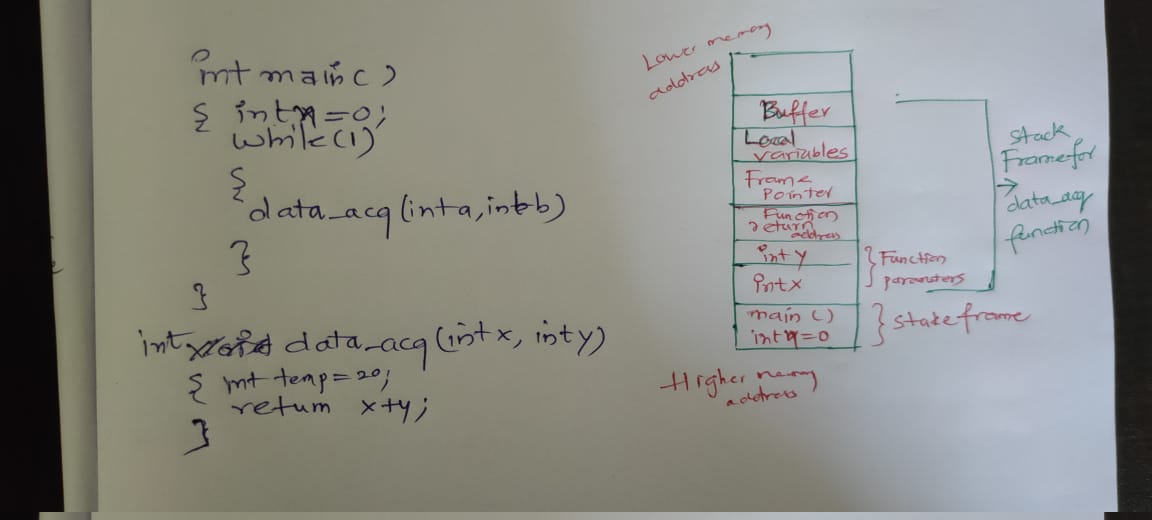 int main()
{ int n=0;
while(1)
{
data_acq (int a, int b)
}
}
int data_acq (int x, int y)
{ int temp=20;
return x+y;
}
Lower memory
address
Buffer
Local
variables
Frame
Pointer
Function
return
address
int y
int x
main ()
int n=0
Higher memory
address
} Function
parameters
} stake frame
stack
Frame for
→ data_acq
function